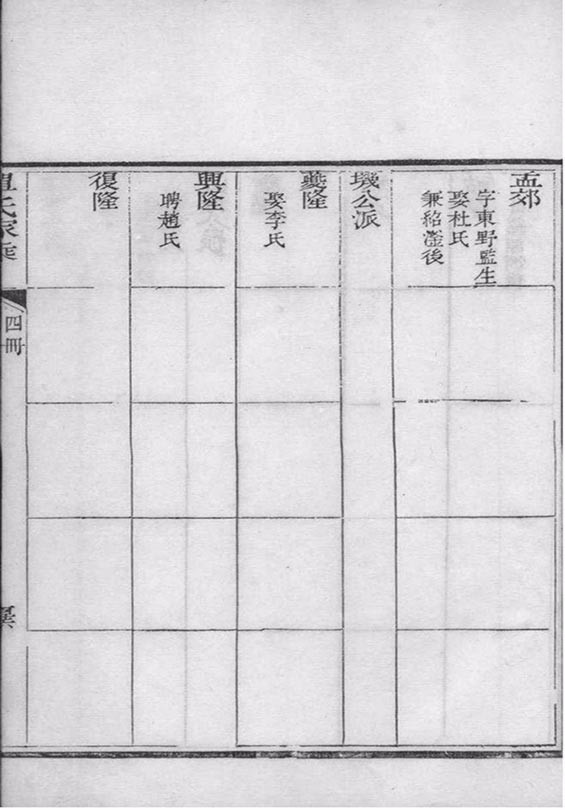 孟郊
字東野監生
娶杜氏
兼紹瀅後
璣公派
夔隆
娶李氏
興隆
聘趙氏
復隆
氏家乘
四冊